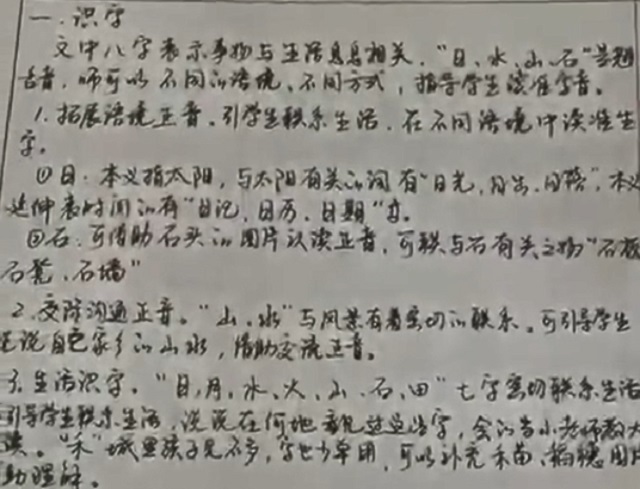 一、识字
文中八字表示事物与生活息息相关，“日、水、山、石”是翘
舌音，师可以不同的语境、不同方式，指导学生读准字音。
1. 拓展语境正音。引学生联系生活，在不同语境中读准生
字。
①日：本义指太阳，与太阳有关的词有“日光，日出、日落”，本义
延伸表时间的有“日记，日历、日期”音。
②石：可借助石头的图片认读正音，可联与石有关之物“石板
石凳、石墙”
2. 交际沟通正音。“山、水”与风景有着密切的联系。可引导学生
说自己家乡的山水，借助交流正音。
3. 生活识字。“日、月、水、火、山、石、田”七字密切联系生活
引导学生联系生活，说说在何地看见过这些字，会的当小老师教大
读。“禾”城里孩子见不多，字也少单用，可以补充禾苗、稻穗图片
助理解。